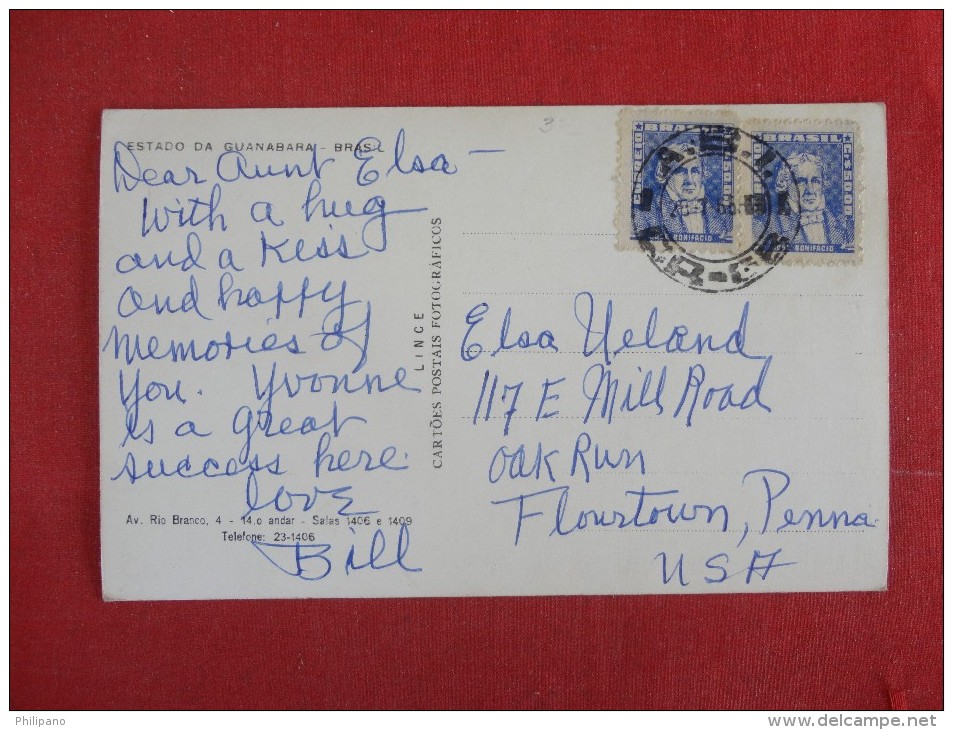 ESTADO DA GUANABARA - BRASIL
Dear Aunt Elsa -
With a hug
and a kiss
and happy
memories of
you. Yvonne
is a great
success here.
love
Bill
Av. Rio Branco, 4 - 14.o andar - Salas 1406 e 1409
Telefone: 23-1406
LINCE
CARTÕES POSTAIS FOTOGRÁFICOS
BRASIL
BONIFACIO
BRASIL
BONIFACIO
Elsa Ueland
117 E Mill Road
Oak Run
Flourtown, Penna.
USA
3
Philipano
www.delcampe.net